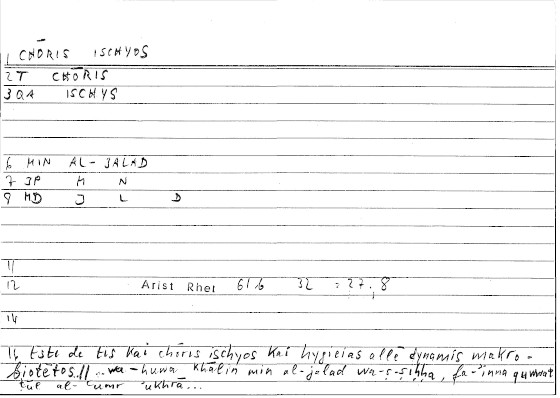 1 CHŌRIS ISCHYOS
2 T CHŌRIS
3 QA ISCHYS
6 MIN AL-JALAD
7 3P M N
8 MD J L D
11
12 Arist Rhet 61b 32 = 27,8
14
16 esti de tis kai chōris ischyos kai hygieias allē dynamis makro-
biotētos // wa-huwa khālin min al-jalad wa-ṣ-ṣiḥḥa, fa-'inna quwwat
ṭūl al-ʿumr 'ukhrā...